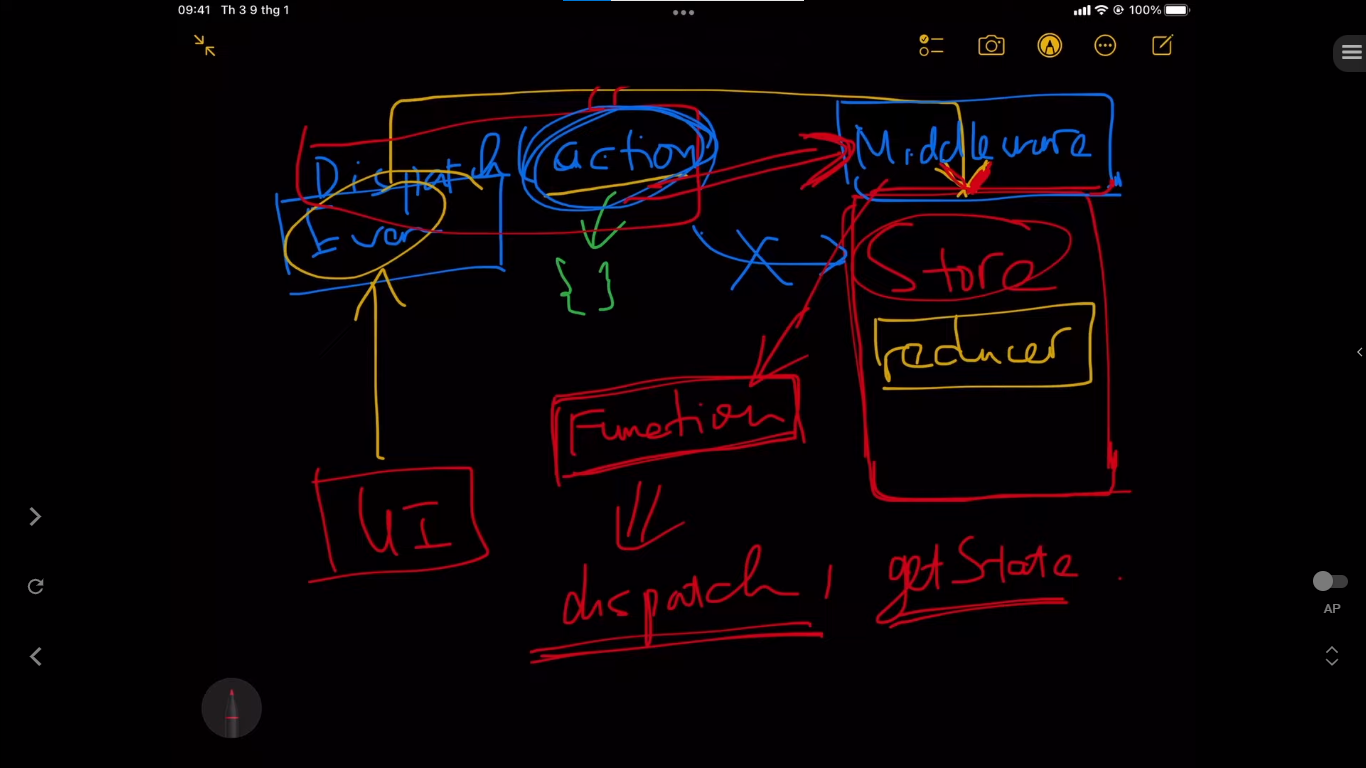 09:41 Th 3 9 thg 1
100%
Dispatch action Middleware
Even
{ }
X
Store
reducer
Function
UI
dispatch, getState.
AP